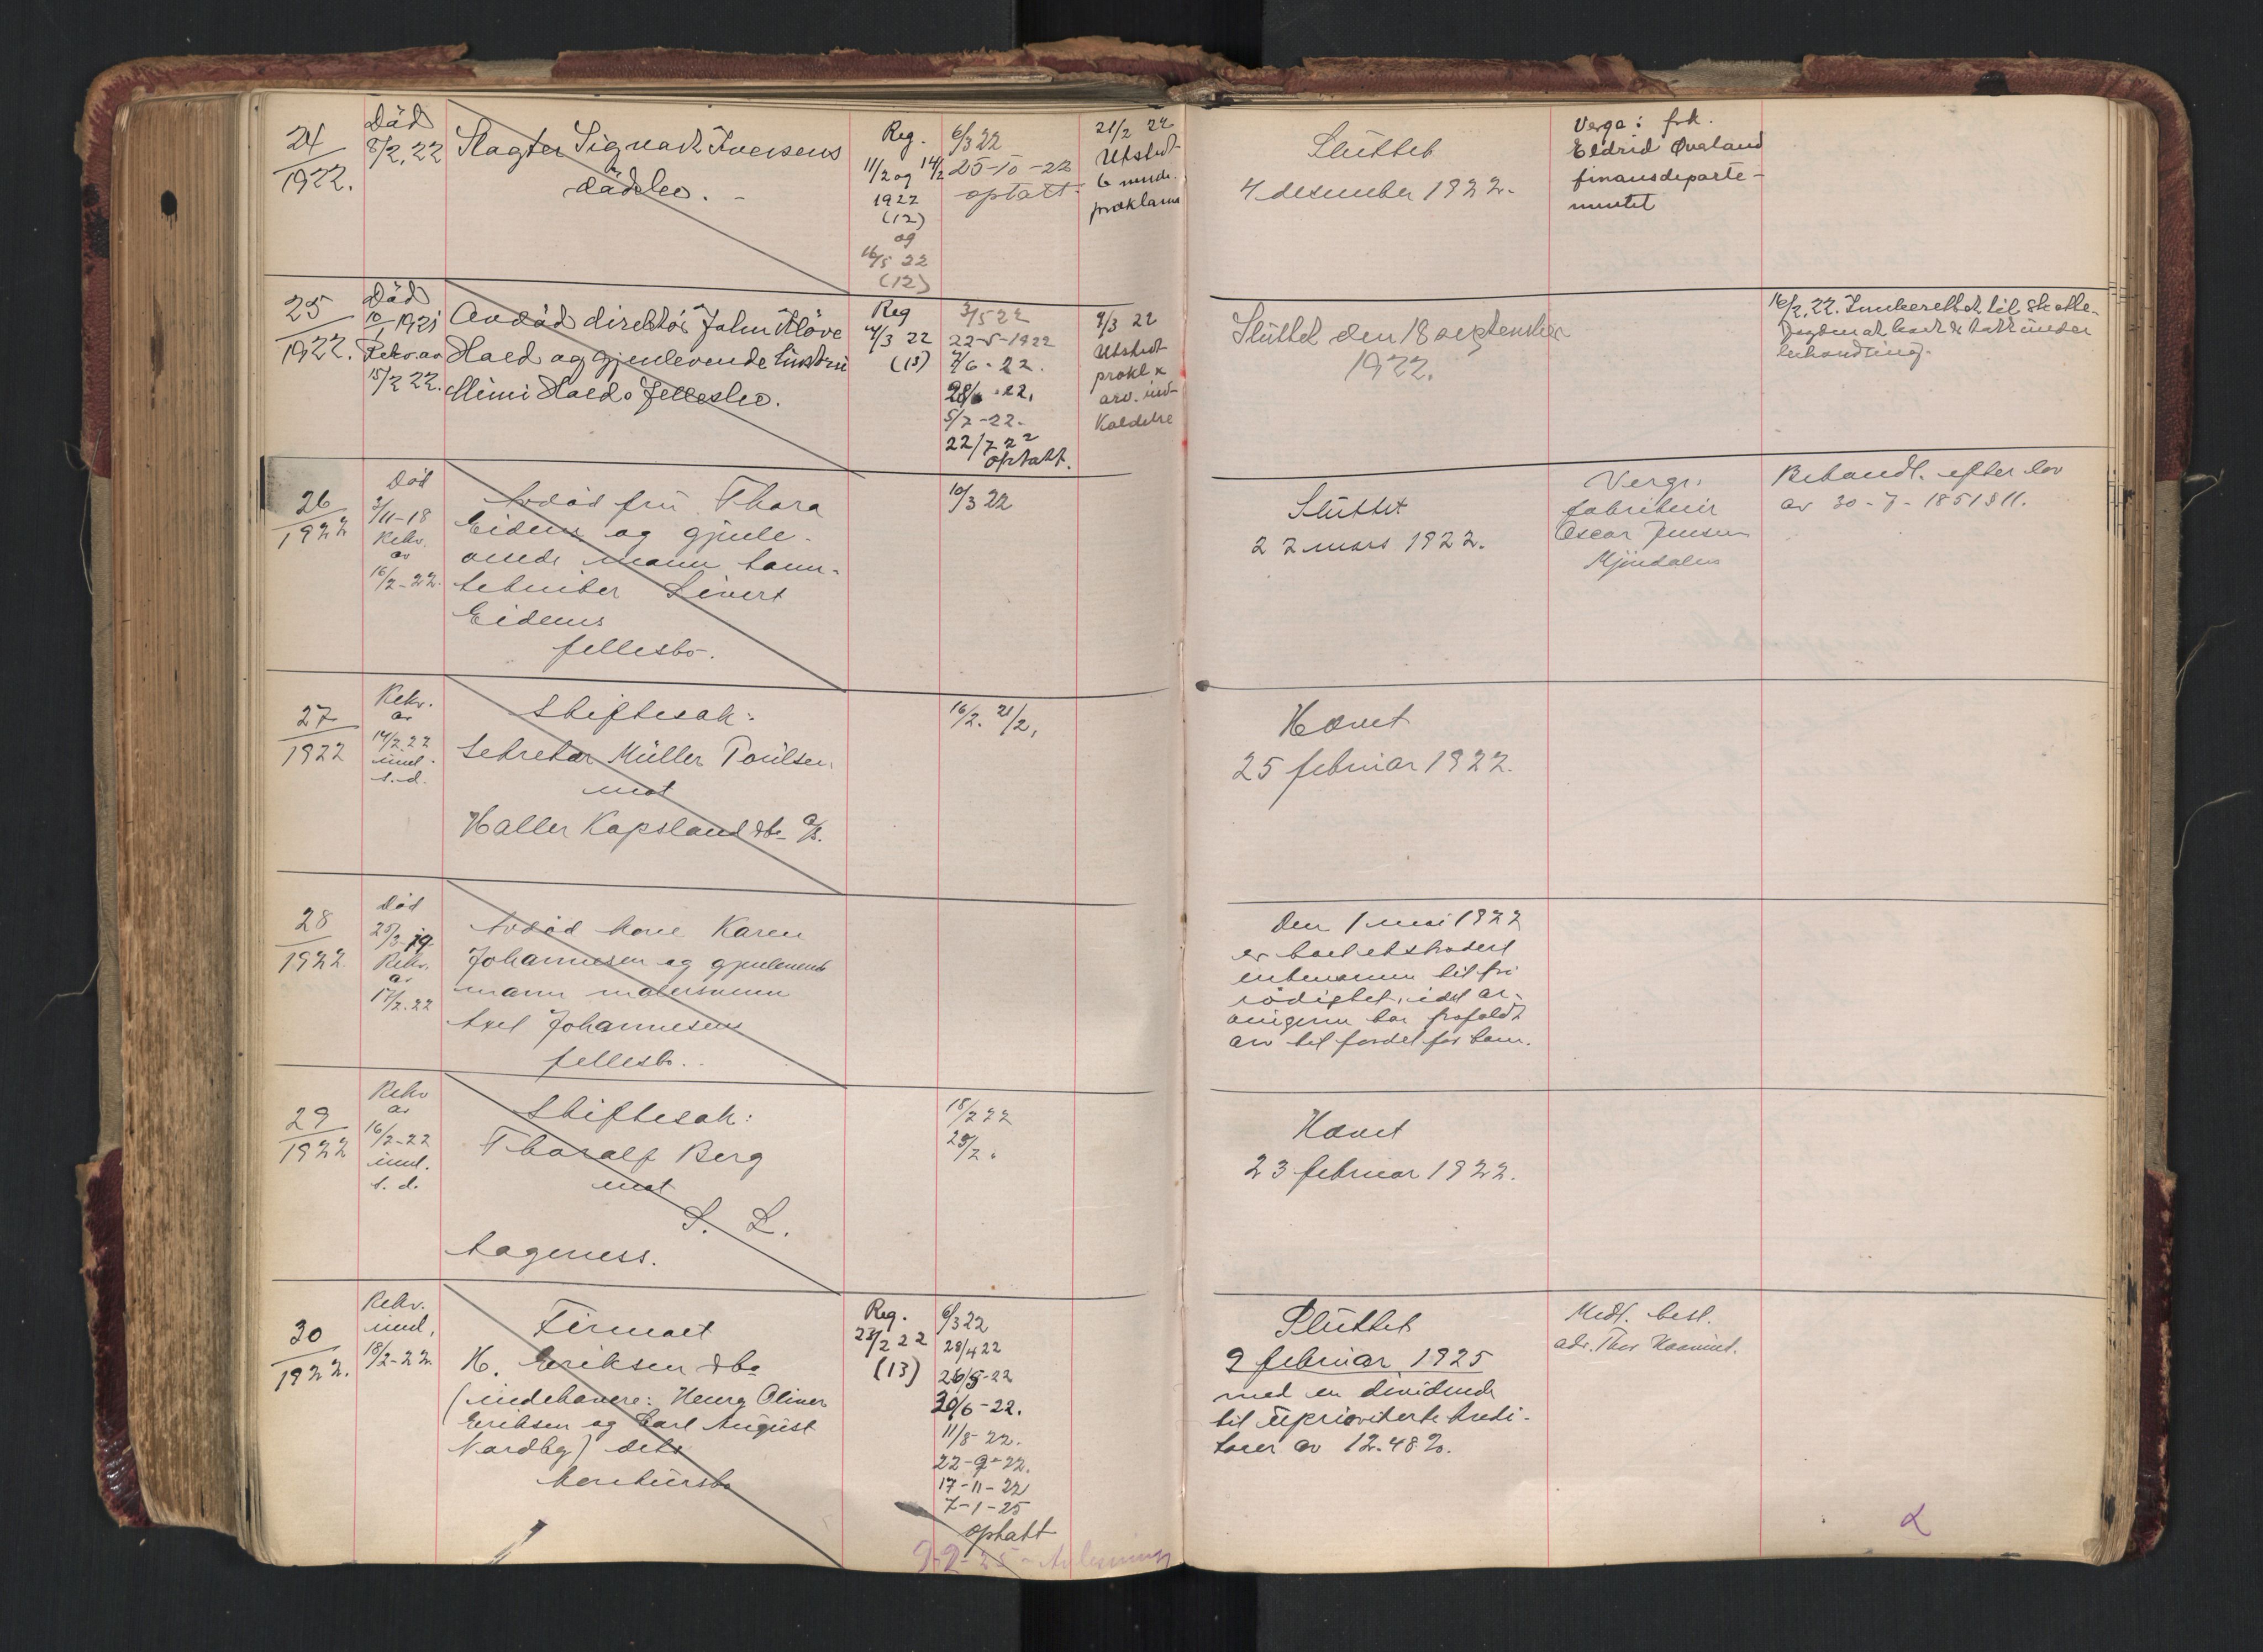 24
1922.
Död
8/2, 22
Slagter Sigvart Iversens
dödsbo. -
Reg.
11/2 og 14/2
1922
(12)
og
16/5 22
(12)
6/3 22
25-10-22
optatt
21/2 22
Utstedt
6 mndr.
proklama
Sluttet
4 desember 1922.
Verge: frk.
Eldrid Øvaland
finansdeparte-
mentet
25
1922.
Död
10/1 1921
Rekv. av
15/2 22.
Avdöd direktör John Klöve
Hald og gjenlevende hustru
Mimi Halds fellesbo.
Reg
14/3 22
(13)
3/5 22
22-5-1922
7/6-22.
28/6-22.
5/7-22.
22/7 22
optatt.
9/3 22
Utstedt
prokl x
arv. ind-
kaldelse
Sluttet den 18 september
1922.
16/2. 22. Innberettet til skatte-
fogden at boet er tatt under
behandling.
26
1922
Död
2/11-18
Rekv.
av
16/2-22.
Avdöd fru Thora
Eidem og gjenle-
vende mann tann-
tekniker Sivert
Eidems
fellesbo.
10/3 22
Sluttet
27 mars 1922.
Verge:
fabrikeier
Oscar Jensen
Mjöndalen
Behandl. efter lov
av 30-7-1851 § 11.
27
1922
Rekv.
av
14/2 22
innl.
s.d.
Skiftesak:
Sekretær Müller Poulsen
mot
Haller Kapsland & Co A/S.
16/2. 21/2.
Hævet
25 februar 1922.
28
1922.
död
25/3-19
Rekv.
av
17/2.22
Avdöd kone Karen
Johannesen og gjenlevende
mann malersvenn
Axel Johannesens
fellesbo.
Den 1 mai 1922
er boet utstradert
enkemannen til fri
rådighet, idet ar-
vingene har frafaldt
arv til fordel for ham.
29
1922
Rekv
av
16/2-22
innl.
s. d.
Skiftesak:
Tharalf Berg
mot
S. L.
Aageness.
18/2 22
23/2.
Hævet
23 februar 1922.
30
1922.
Rekv.
innl.
18/2-22.
Firmaet
H. Eriksen & Co
(indehavere: Henry Oliver
Eriksen og Carl August
Nordby) dets
konkursbo
Reg.
23/2 22
(13)
6/3 22
28/4 22
26/5-22
30/6-22.
11/8-22.
22-9-22.
17-11-22
7-1-25
optatt
9-2-25
Sluttet
9 februar 1925
med en dividende
til uprioriterte kredi-
torer av 12.48%.
Midl. best.
adv. Thor